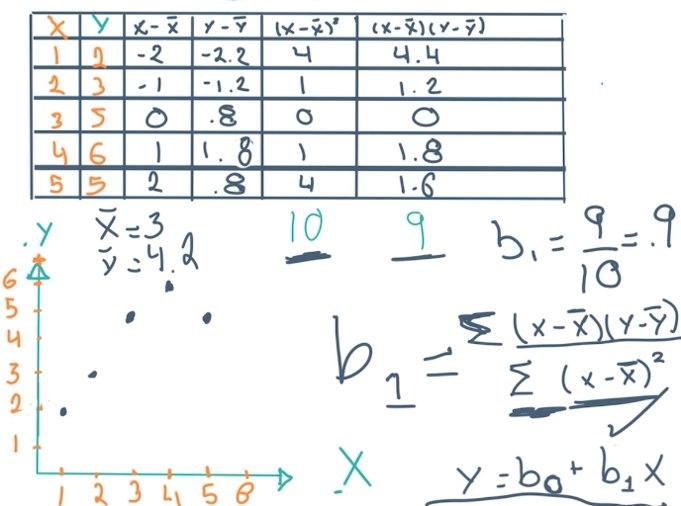 X Y x - x̄ y - ȳ (x - x̄)² (x - x̄)(y - ȳ)
1 2 -2 -2.2 4 4.4
2 3 -1 -1.2 1 1.2
3 5 0 .8 0 0
4 6 1 1.8 1 1.8
5 5 2 .8 4 1.6
x̄ = 3
ȳ = 4.2
10 9
b₁ = 9/10 = .9
b₁ = Σ (x - x̄)(y - ȳ) / Σ (x - x̄)²
y = b₀ + b₁ x
.Y
6
5
4
3
2
1
1 2 3 4 5 6
X